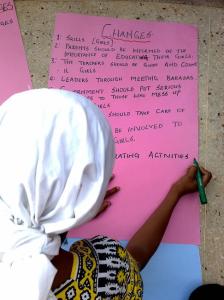 CHANGES
1. SKILLS (GIRLS)
2. PARENTS SHOULD BE INFORMED ON THE
IMPORTANCE OF EDUCATING THEIR GIRLS.
3. THE TEACHERS SHOULD BE GUIDE AND COUNS
GIRLS
4. LEADERS THROUGH MEETING BARAZAS
SHOULD PUT SERIOUS
TO THOSE WHO MESS UP
GIRLS
SHOULD TAKE CARE OF
BE INVOLVED TO
GIRLS.
RATING ACTIVITIES